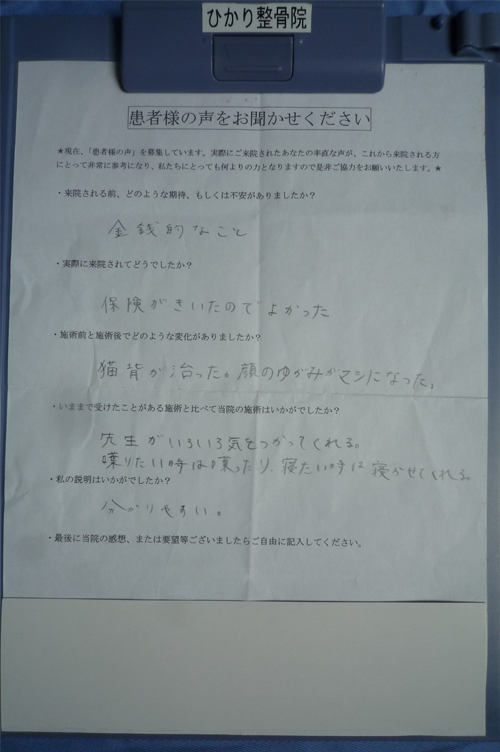 ひかり整骨院
患者様の声をお聞かせください
★現在、「患者様の声」を募集しています。実際にご来院されたあなたの率直な声が、これから来院される方
にとって非常に参考になり、私たちにとっても何よりの力となりますので是非ご協力をお願いいたします。★
・来院される前、どのような期待、もしくは不安がありましたか?
金銭的なこと
・実際に来院されてどうでしたか?
保険がきいたのでよかった
・施術前と施術後でどのような変化がありましたか?
猫背が治った。顔のゆがみがマシになった。
・いままで受けたことがある施術と比べて当院の施術はいかがでしたか?
先生がいろいろ気をつかってくれる。
喋りたい時は喋ったり、寝たい時は寝かせてくれる。
・私の説明はいかがでしたか?
分かりやすい。
・最後に当院の感想、または要望等ございましたらご自由に記入してください。